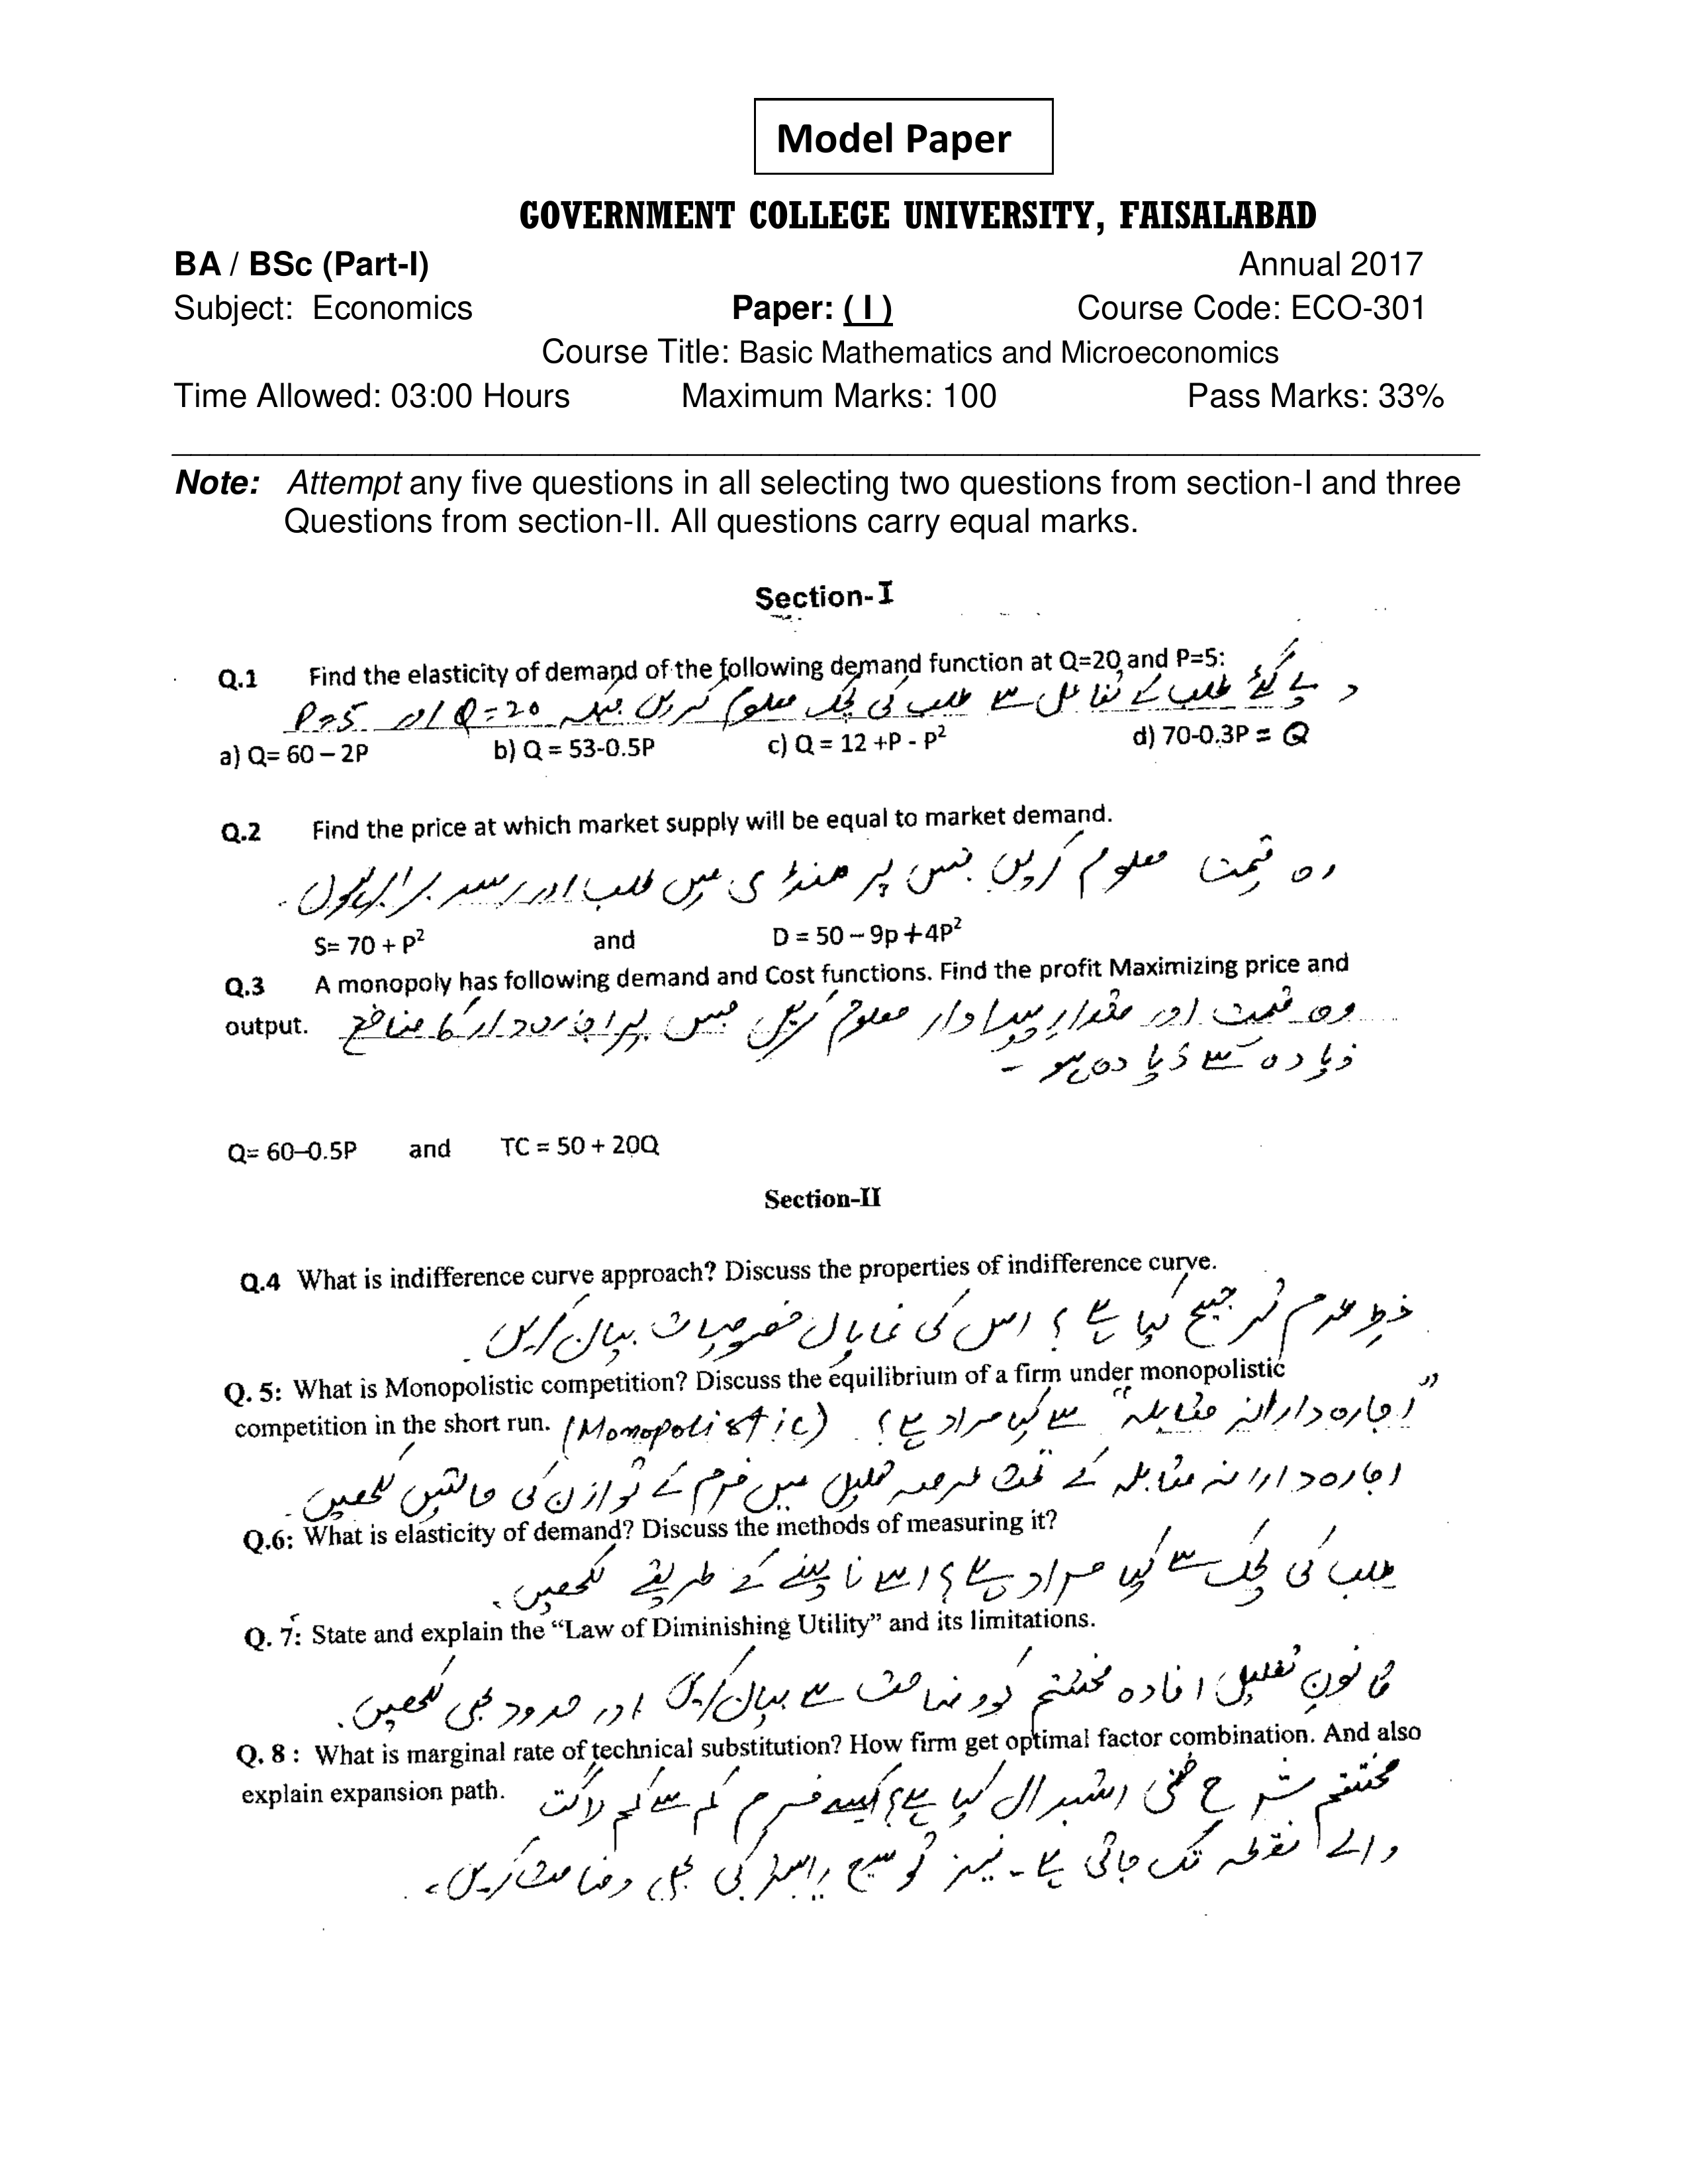 Model Paper
GOVERNMENT COLLEGE UNIVERSITY, FAISALABAD
BA / BSc (Part-I) Annual 2017
Subject: Economics Paper: ( I ) Course Code: ECO-301
Course Title: Basic Mathematics and Microeconomics
Time Allowed: 03:00 Hours Maximum Marks: 100 Pass Marks: 33%
Note: Attempt any five questions in all selecting two questions from section-I and three
Questions from section-II. All questions carry equal marks.
Section-I
Q.1 Find the elasticity of demand of the following demand function at Q=20 and P=5:
دیے گئے طلب کے تفاعل سے طلب کی لچک معلوم کریں جبکہ Q=20 اور P=5
a) Q= 60 – 2P b) Q = 53-0.5P c) Q = 12 +P - P² d) 70-0.3P = Q
Q.2 Find the price at which market supply will be equal to market demand.
وہ قیمت معلوم کریں جس پر منڈی میں طلب اور رسد برابر ہوں.
S= 70 + P² and D = 50 – 9p +4P²
Q.3 A monopoly has following demand and Cost functions. Find the profit Maximizing price and
output. وہ قیمت اور مقدار پیداوار معلوم کریں جس پر اجارہ دار کا منافع
زیادہ سے زیادہ ہو -
Q= 60–0.5P and TC = 50 + 20Q
Section-II
Q.4 What is indifference curve approach? Discuss the properties of indifference curve.
خط عدم ترجیح کیا ہے ؟ اس کی نمایاں خصوصیات بیان کریں.
Q. 5: What is Monopolistic competition? Discuss the equilibrium of a firm under monopolistic
competition in the short run. (Monopolistic) "اجارہ دارانہ مقابلہ" سے کیا مراد ہے؟
اجارہ دارانہ مقابلہ کے تحت عرصہ قلیل میں فرم کے توازن کی حالتیں لکھیں.
Q.6: What is elasticity of demand? Discuss the methods of measuring it?
طلب کی لچک سے کیا مراد ہے؟ اسے ناپنے کے طریقے لکھیں.
Q. 7: State and explain the “Law of Diminishing Utility” and its limitations.
قانون تقلیل افادہ مختتم کو وضاحت سے بیان کریں اور حدود بھی لکھیں.
Q. 8 : What is marginal rate of technical substitution? How firm get optimal factor combination. And also
explain expansion path. مختتم شرح فنی استبدال کیا ہے؟ کیسے فرم کم سے کم لاگت
والے نقطہ تک جاتی ہے۔ نیز توسیع راستہ کی بھی وضاحت کریں.